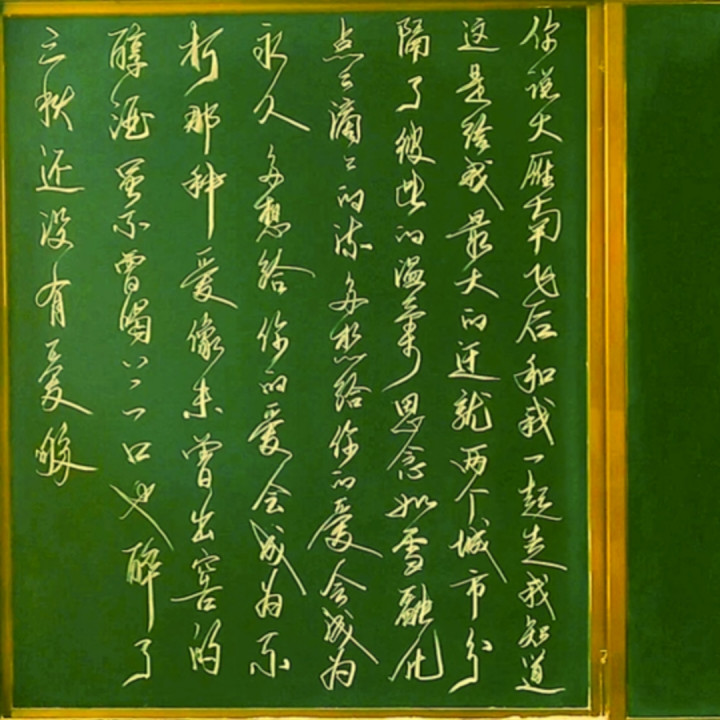 你说大雁南飞后和我一起走我知道
这是给我最大的迁就两个城市分
隔了彼此的温馨思念如雪融化
点〻滴〻的流多想给你的爱会成为
永久多想给你的爱会成为不
朽那种爱像未曾出窖的
醇酒虽不曾喝一口也醉了
三秋还没有爱够